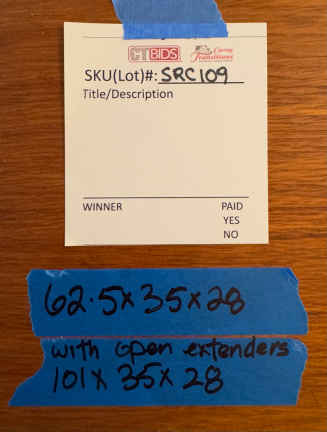 CTBIDS Caring Transitions
SKU(Lot)#: SRC109
Title/Description
WINNER PAID
YES
NO
62.5x35x28
with open extenders
101x 35x 28